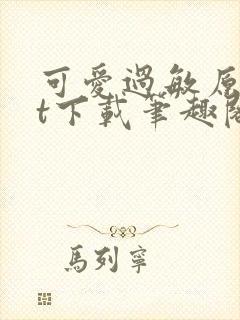 可愛過敏原
t下載筆趣閣
馬列寧